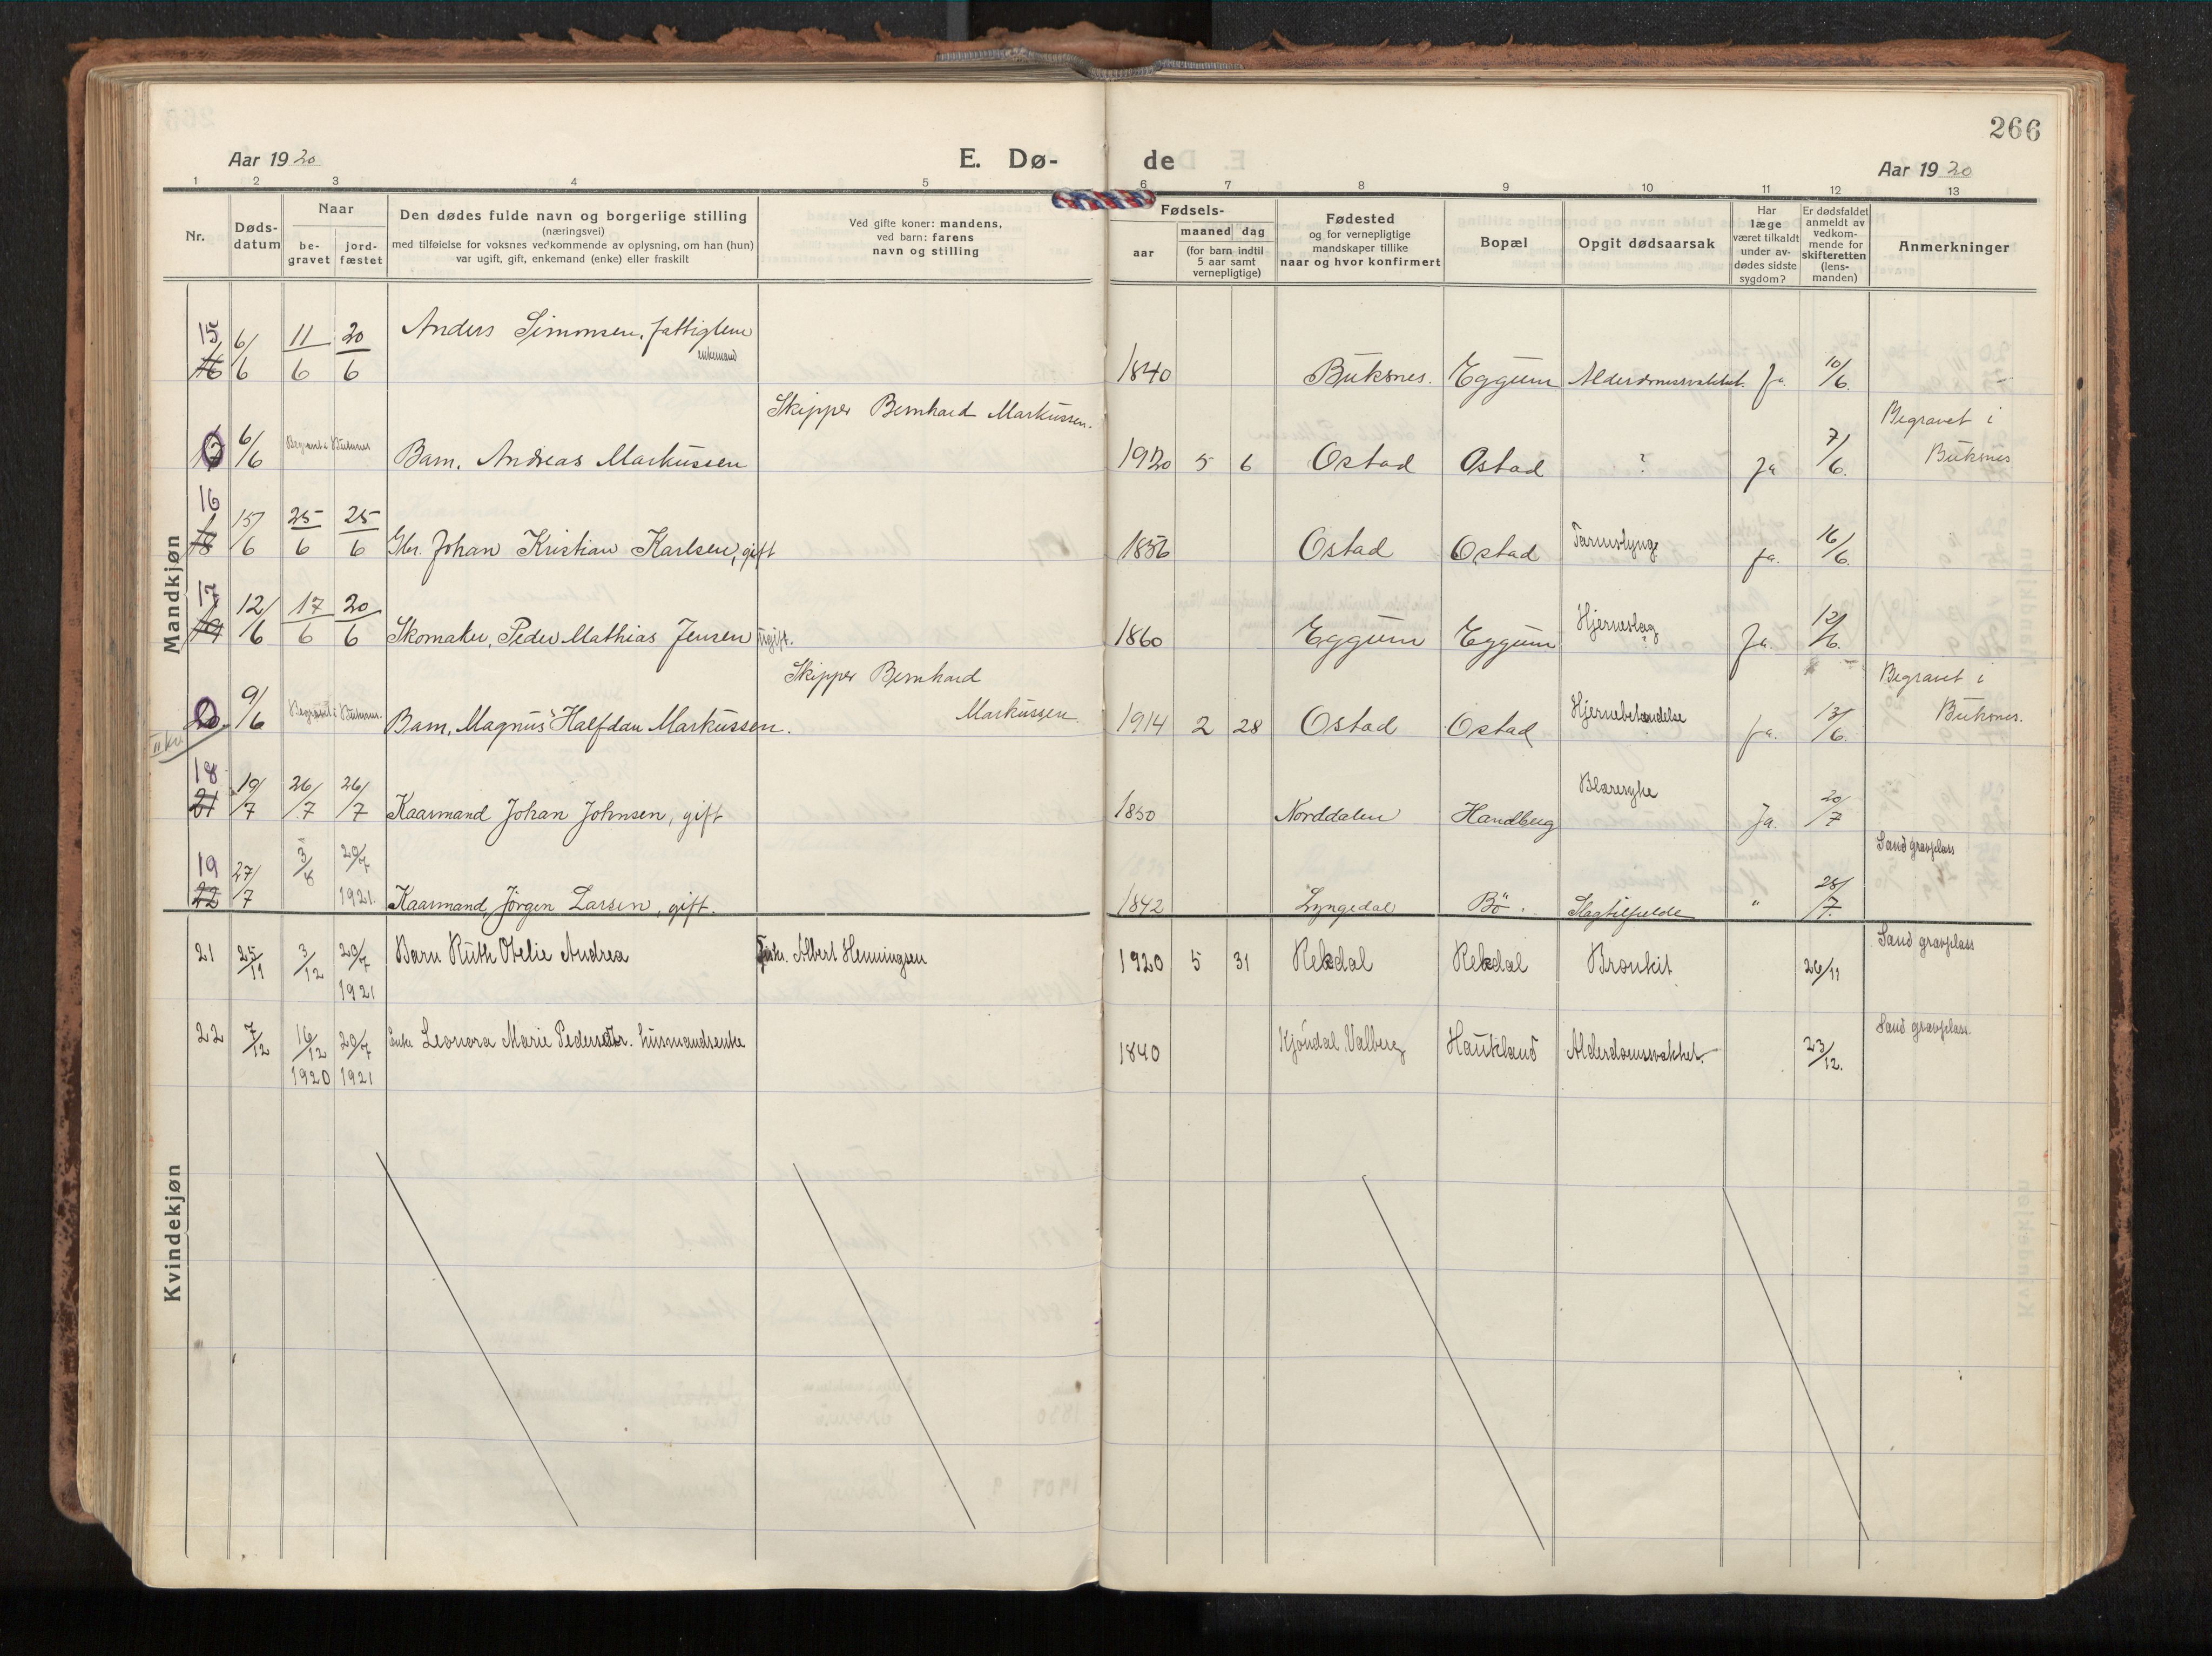 266
Aar 1920
E. Dø-
de
Aar 1920
1 2 3 4 5 6 7 8 9 10 11 12 13
Nr.
Døds-
datum
Naar
be-
gravet
jord-
fæstet
Den dødes fulde navn og borgerlige stilling
(næringsvei)
med tilføielse for voksnes vedkommende av oplysning, om han (hun)
var ugift, gift, enkemand (enke) eller fraskilt
Ved gifte koner: mandens,
ved barn: farens
navn og stilling
Fødsels-
aar
maaned dag
(for barn indtil
5 aar samt
vernepligtige)
Fødested
og for vernepligtige
mandskaper tillike
naar og hvor konfirmert
Bopæl
Opgit dødsaarsak
Har
læge
været tilkaldt
under av-
dødes sidste
sygdom?
Er dødsfaldet
anmeldt av
vedkom-
mende for
skifteretten
(lens-
manden)
Anmerkninger
Mandkjøn
15 16 6/6 11/6 20/6 Anders Simonsen, fattiglem
enkemand
1840 Buksnes. Eggum Alderdomssvakhet. Ja. 10/6.
Skipper Bernhard Markussen.
6/6 Begravet i Buksnes Barn, Andreas Markussen 1920 5 6 Ostad Ostad ? Ja 7/6. Begravet i
Buksnes
16 18 15/6 25/6 25/6 Gbr. Johan Kristian Karlsen, gift 1856 Ostad Ostad Tarmslyng Ja. 16/6.
17 19 12/6 17/6 20/6 Skomaker, Peder Mathias Jensen ugift. 1860 Eggum Eggum Hjerneslag Ja. 12/6.
Skipper Bernhard
Markussen.
20 9/6 Begravet i Buksnes. Barn, Magnus Halfdan Markussen. 1914 2 28 Ostad Ostad Hjernebetændelse Ja. 13/6. Begravet i
Buksnes.
18 21 19/7 26/7 26/7 Kaarmand Johan Johnsen, gift 1850 Norddalen Handberg Blæresyke Ja. 20/7
19 22 27/7 3/8 29/7 1921. Kaarmand, Jörgen Larsen, gift. 1842 Lyngedal Bö. Slagtilfælde " 28/7. Sand gravplass
Kvindekjøn
21 25/11 3/12 29/7 1921 Barn Ruth Otelie Andrea Fisker. Albert Henningsen 1920 5 31 Rekdal Rekdal Bronkit 26/11 Sand gravplass
22 7/12 16/12 1920 29/7 1921 Enke Leonora Marie Pedersdtr. husmandsenke 1840 Kjöndal Valberg Haukland Alderdomssvakhet. 23/12. Sand gravplass.